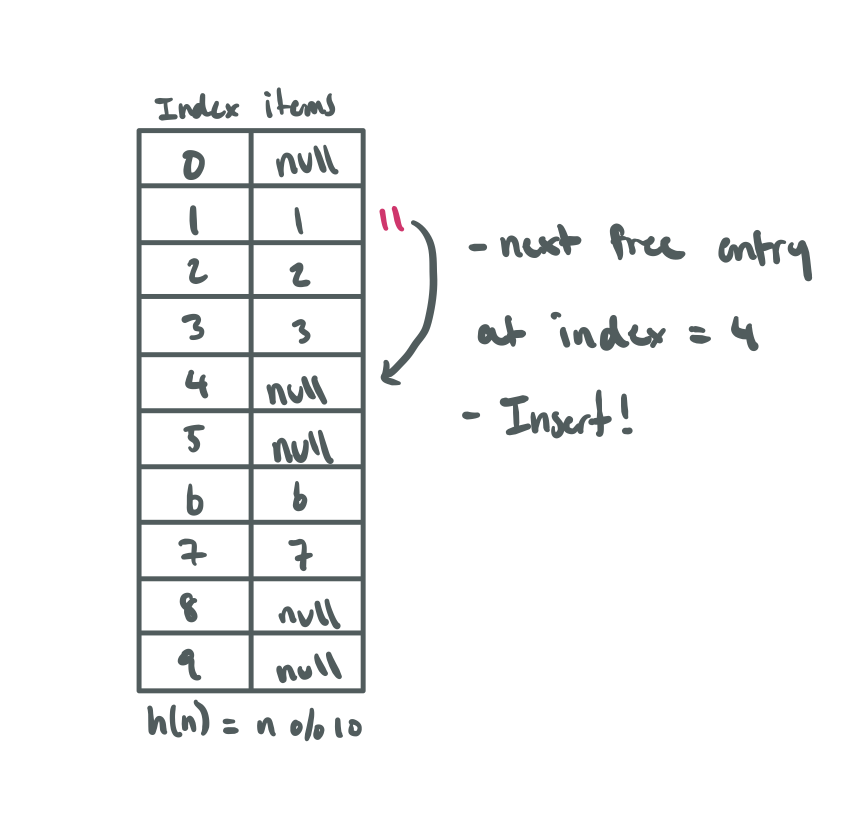 Index items
0 null
1 1 11
2 2
3 3
4 null
5 null
6 6
7 7
8 null
9 null
h(n) = n % 10
- next free entry
at index = 4
- Insert!